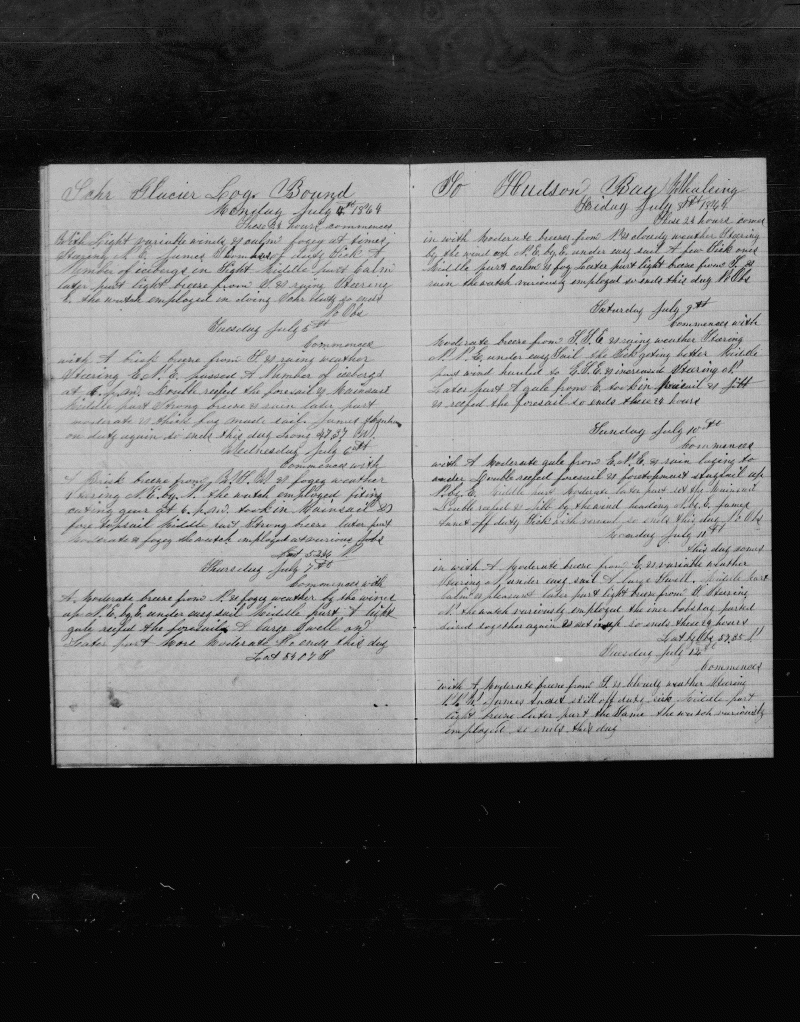 Schr Glacier Log. Bound
Monday July 4th 1864
These 24 hours commences
With Light variable winds & calm fogey at times
Stearing N. E. James Thomas of duty Sick A
Number of icebergs in Sight Middle part Calm
later part light breeze from S. & rainy Stearing
the watch employed in doing Schr duty so ends
No Obs
Tuesday July 5th
Commences
with A brisk breeze from S. & rainy weather
Steering E. N. E. passed A Number of icebergs
at 6. p.m. Double reefed the foresail & Mainsail
Middle part Strong breeze & rain later part
moderate & thick fog made sail. James
on duty again so ends this day
Wednesday July 6th
Commences with
A Brisk breeze from W. S. W & fogey weather
Stearing N. E. by. N. the watch employed fixing
cuting gear at 6. p.m. took in Mainsail &
fore topsail Middle part Strong breeze later part
Moderate & fogey the watch employed at various jobs
Thursday July 7th
Commences with
A. Moderate breeze from N. & fogey weather by the wind
up N. E. by E under easy sail Middle part A light
gale reefed the foresail A large Swell on
Later part More Moderate So ends this day
Lat 58.07 N
To Hudson Bay Whaleing
Friday July 8th 1864
These 24 hours comes
in with Moderate breezes from N. & cloudy weather Stearing
by the wind up N. E. by. E. under easy sail A few Sick ones
Middle part calm & fog Later part light breeze from S. &
rain the watch variously employed so ends this day No Obs
Saturday July 9th
Commences with
Moderate breeze from S. S. E & rainy weather Stearing
N. N. E. under easy Sail the Sick geting better Middle
part wind hauled to E. S. E & increased Stearing N.
Later part A gale from E. took in mainsail & jibb
& reefed the foresail so ends these 24 hours
Sunday July 10th
Commences
with A Moderate gale from E. N. E. & rain laying to
under Double reefed foresail & foretopmast staysail up
N. by. E. Middle part Moderate later part set the Mainsail
Double reefed & jib by the wind heading N. by. E. James
off duty Sick with so ends this day No Obs
Monday July 11th
This day comes
in with A Moderate breeze from E. & variable weather
Stearing N. under easy sail A large Swell. Middle part
Calm & pleasant later part light breeze from W. Stearing
N. the watch variously employed the
together again & set up so ends these 24 hours
Lat by Obs 59.35 N
Tuesday July 12th
Commences
with A Moderate breeze from S. & cloudy weather Stearing
James still off duty sick Middle part
light breeze later part the Same the watch variously
employed so ends this day